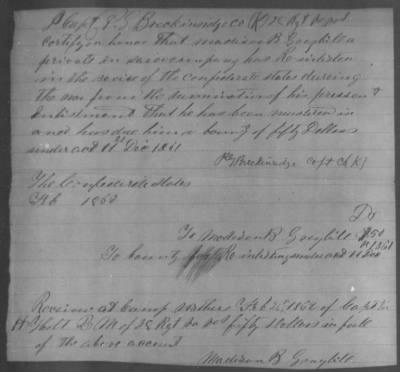 I Capt. P. G. Breckinridge co (K) 28 Rgt Va vol
certify on honor That Madison B Graybill a
private in same company has Re inlisted
in the service of the confederate states durring
the war from the termination of his pressent
enlistment That he has been mustered in
and has due him a bounty of fifty Dollars
under act 11 Dec 1861
P G Breckinridge Capt Co K
The Confederate States
Feb 1862
Dr
To Madison B Graybill $50
To bounty for Re inlisting under act 11 Dec
Receivd at Camp Feb 1862 of Capt
Q M of 28 Rgt Va vol fifty Dollars in full
of the above account
Madison B Graybill